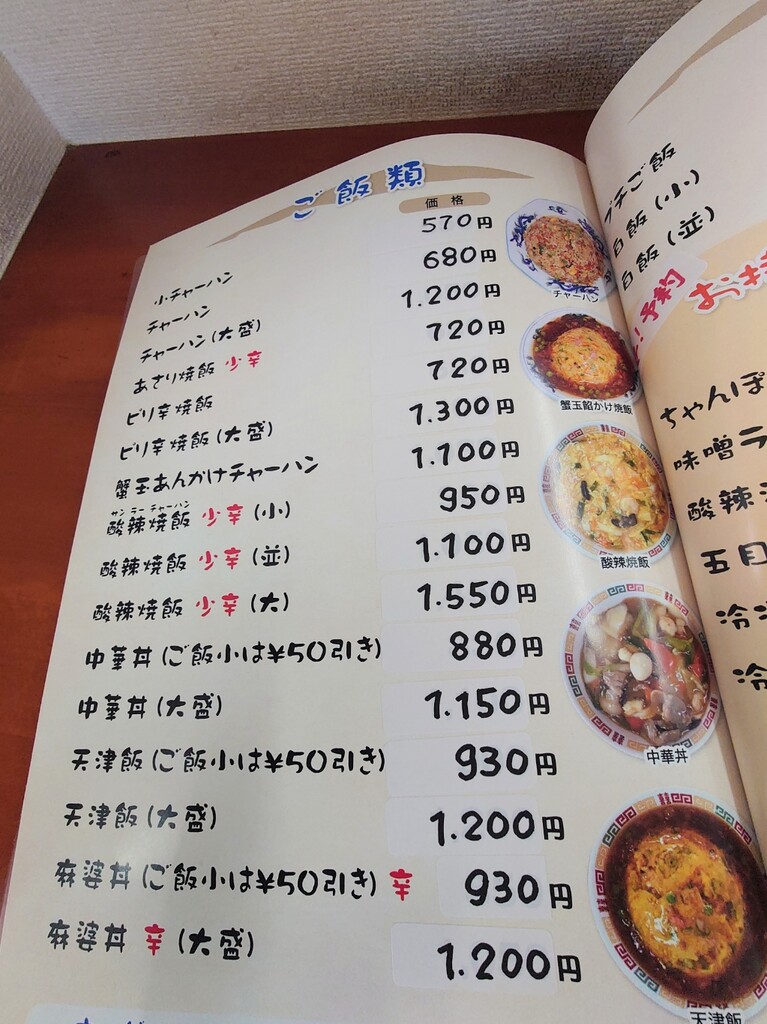 ご飯類
価格
小チャーハン 570円
チャーハン 680円
チャーハン(大盛) 1.200円
あさり焼飯 少辛 720円
ピリ辛焼飯 720円
ピリ辛焼飯(大盛) 1.300円
蟹玉あんかけチャーハン 1.100円
サンラーチャーハン
酸辣焼飯 少辛(小) 950円
酸辣焼飯 少辛(並) 1.100円
酸辣焼飯 少辛(大) 1.550円
中華丼(ご飯小は¥50引き) 880円
中華丼(大盛) 1.150円
天津飯(ご飯小は¥50引き) 930円
天津飯(大盛) 1.200円
麻婆丼(ご飯小は¥50引き)辛 930円
麻婆丼 辛(大盛) 1.200円
チャーハン
蟹玉餡かけ焼飯
酸辣焼飯
中華丼
天津飯
プチご飯
白飯(小)
白飯(並)
予約
お持
ちゃんぽ
味噌ラ
酸辣
五目
冷
冷